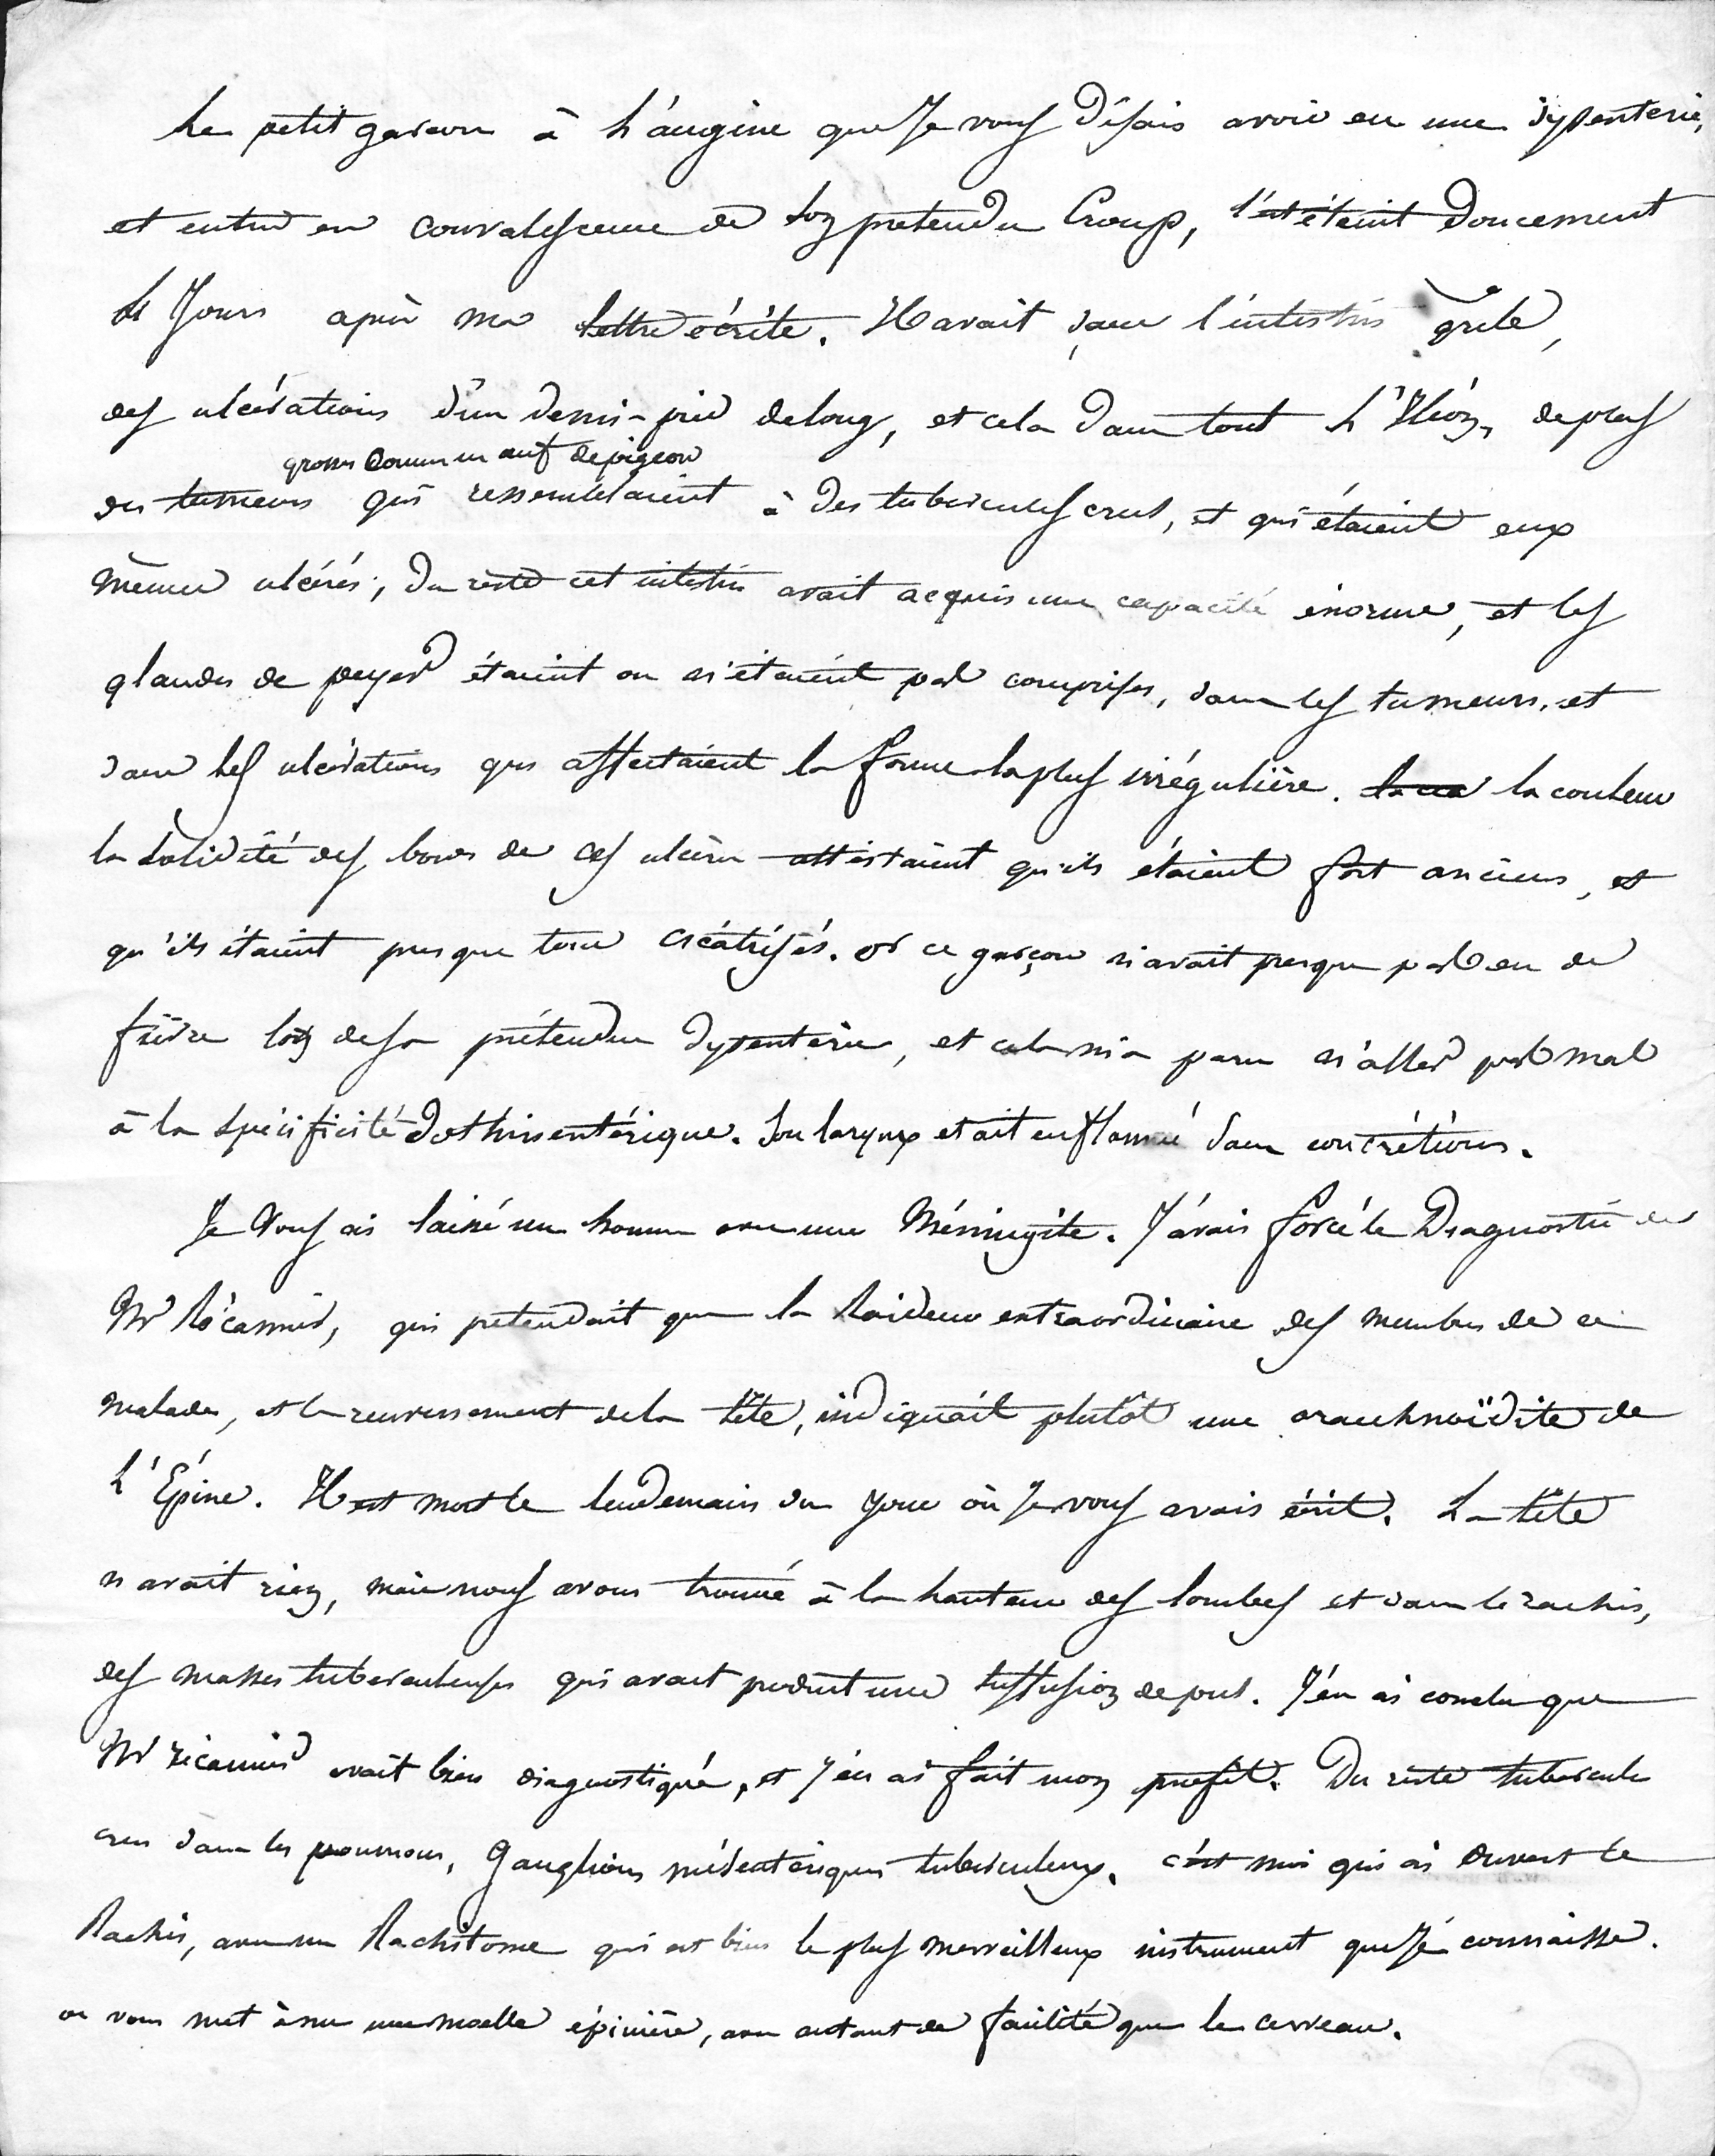 Le petit garcon à L'angine que Je vous disais avoir eu une dysenterie,
et entrer en convalescence de son pretendu Croup, s'est éteint doucement
Jours après ma lettre écrite. Il avait dans l'intestin grele,
des ulcérations d'un demi-pied de long, et cela dans tout L'Iléon, de plus
grosses comme un œuf de pigeon
des tumeurs qui ressemblaient à des tubercules crus, et qui étaient eux
mêmes ulcérés; du reste cet intestin avait acquis une capacité énorme, et les
glandes de peyer étaient ou n'étaient pas comprises, dans les tumeurs, et
dans les ulcérations qui affectaient la forme la plus irrégulière. la couleur
la solidité des bords de ces ulcères attestaient qu'ils étaient fort anciens, et
qu'ils étaient presque tous cicatrisés. or ce garçon n'avait presque pas eu de
fièvre lors de sa prétendue dysenterie, et cela m'a paru n'aller pas mal
à la spécificité dothinentérique. Son larynx etait enflammé sans concrétions.
Je Vous ai laissé un homme avec une Méningite. J'avais forcé le Diagnostic de
Mr Récamier, qui pretendait que la Raideur extraordinaire des membres de ce
malade, et le renversement de la tête, indiquait plutôt une arachnoïdite de
L'Epine. Il est mort le lendemain du jour où Je vous avais écrit. La tête
n'avait rien, mais nous avons trouvé à la hauteur des lombes et dans le rachis,
des masses tuberculeuses qui avait produit une suffusion de pus. J'en ai conclu que
Mr récamier avait bien diagnostiqué, et j'en ai fait mon profit. Du reste tubercules
crus dans les poumons, Ganglions mésentériques tuberculeux. c'est moi qui ai ouvert le
Rachis, avec un Rachitome qui est bien le plus merveilleux instrument que Je connaisse.
on vous met à nu une moelle épinière, avec autant de facilité que le cerveau.